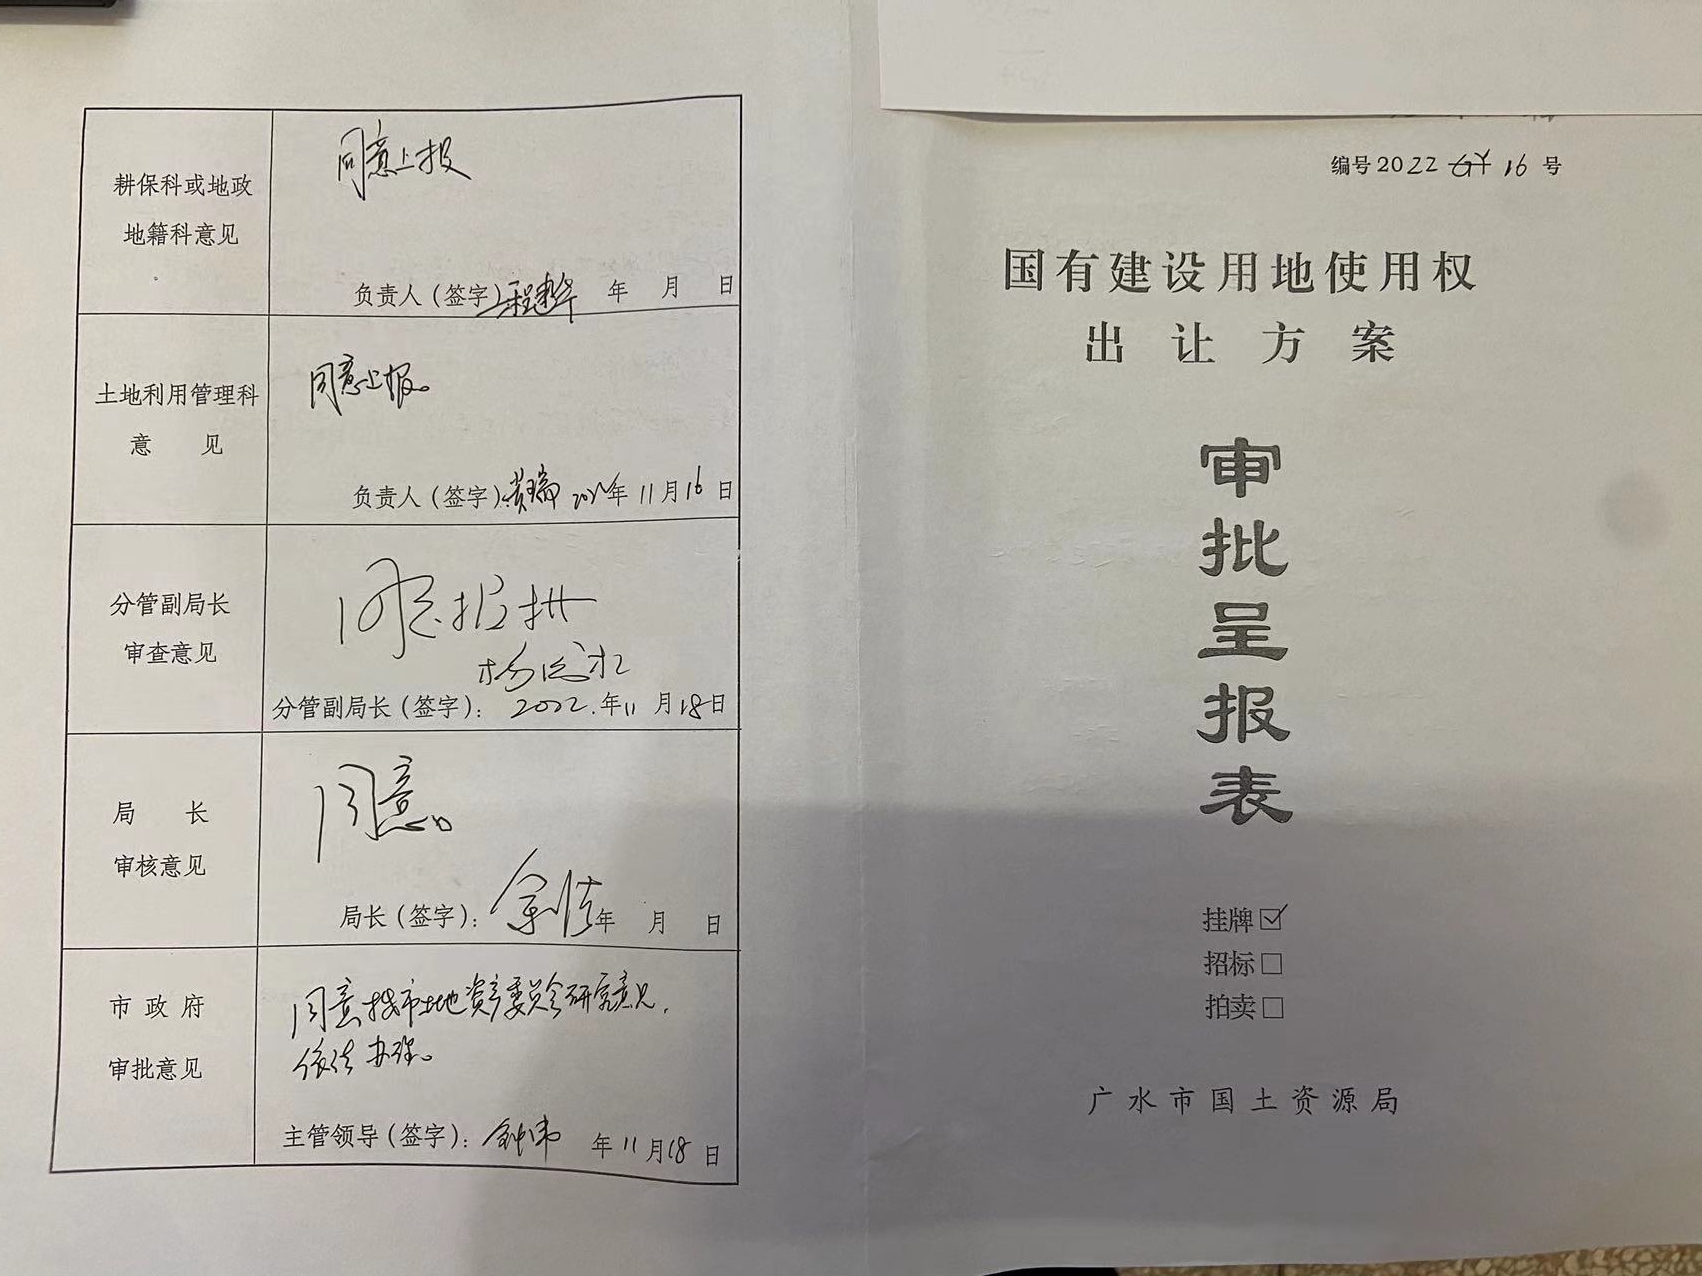 耕保科或地政
地籍科意见
同意上报
负责人（签字） 年 月 日
土地利用管理科
意 见
同意上报。
负责人（签字）:黄瑞 2022年 11月16日
分管副局长
审查意见
同意报批
分管副局长（签字）: 2022.年11月18日
局 长
审核意见
同意。
局长（签字）: 年 月 日
市政府
审批意见
同意按市土地资产委员会研究意见，
依法办理。
主管领导（签字）: 年11月18日
编号2022 16号
国有建设用地使用权
出让方案
审
批
呈
报
表
挂牌☑
招标□
拍卖□
广水市国土资源局